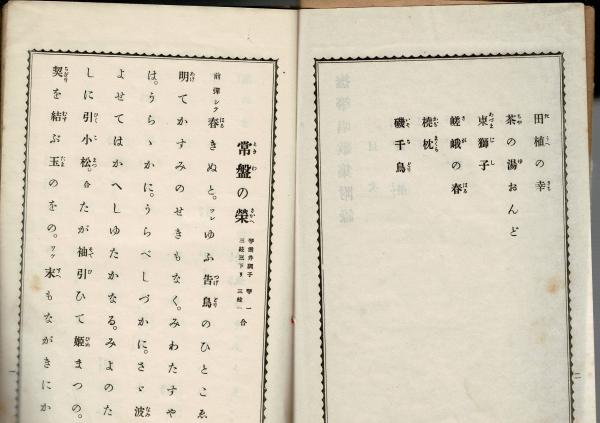 田植の幸
茶の湯おんど
東獅子
嵯峨の春
楫枕
磯千鳥
二
常盤の榮
琴雲井調子 琴一
三絃三下り 三絃一 合
前彈シク 春きぬと。ツレゆふ告鳥のひとこゑ
明てかすみのせきもなく。みわたすや
は。うらゝかに。うらべしづかに。さゝ波
よせてはかへしゆたかなる。みよのた
しに引小松。合たが袖引ひて姫まつの。
契を結ぶ玉のをの。ワケ末もながきにか
一